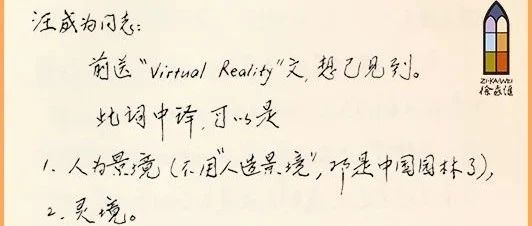 汪成为同志：
前送“Virtual Reality”文，想已见到。
此词中译，可以是
1. 人为景境（不用“人造景境”，那是中国园林了），
2. 灵境。
ZI-KA-WEI
徐家汇